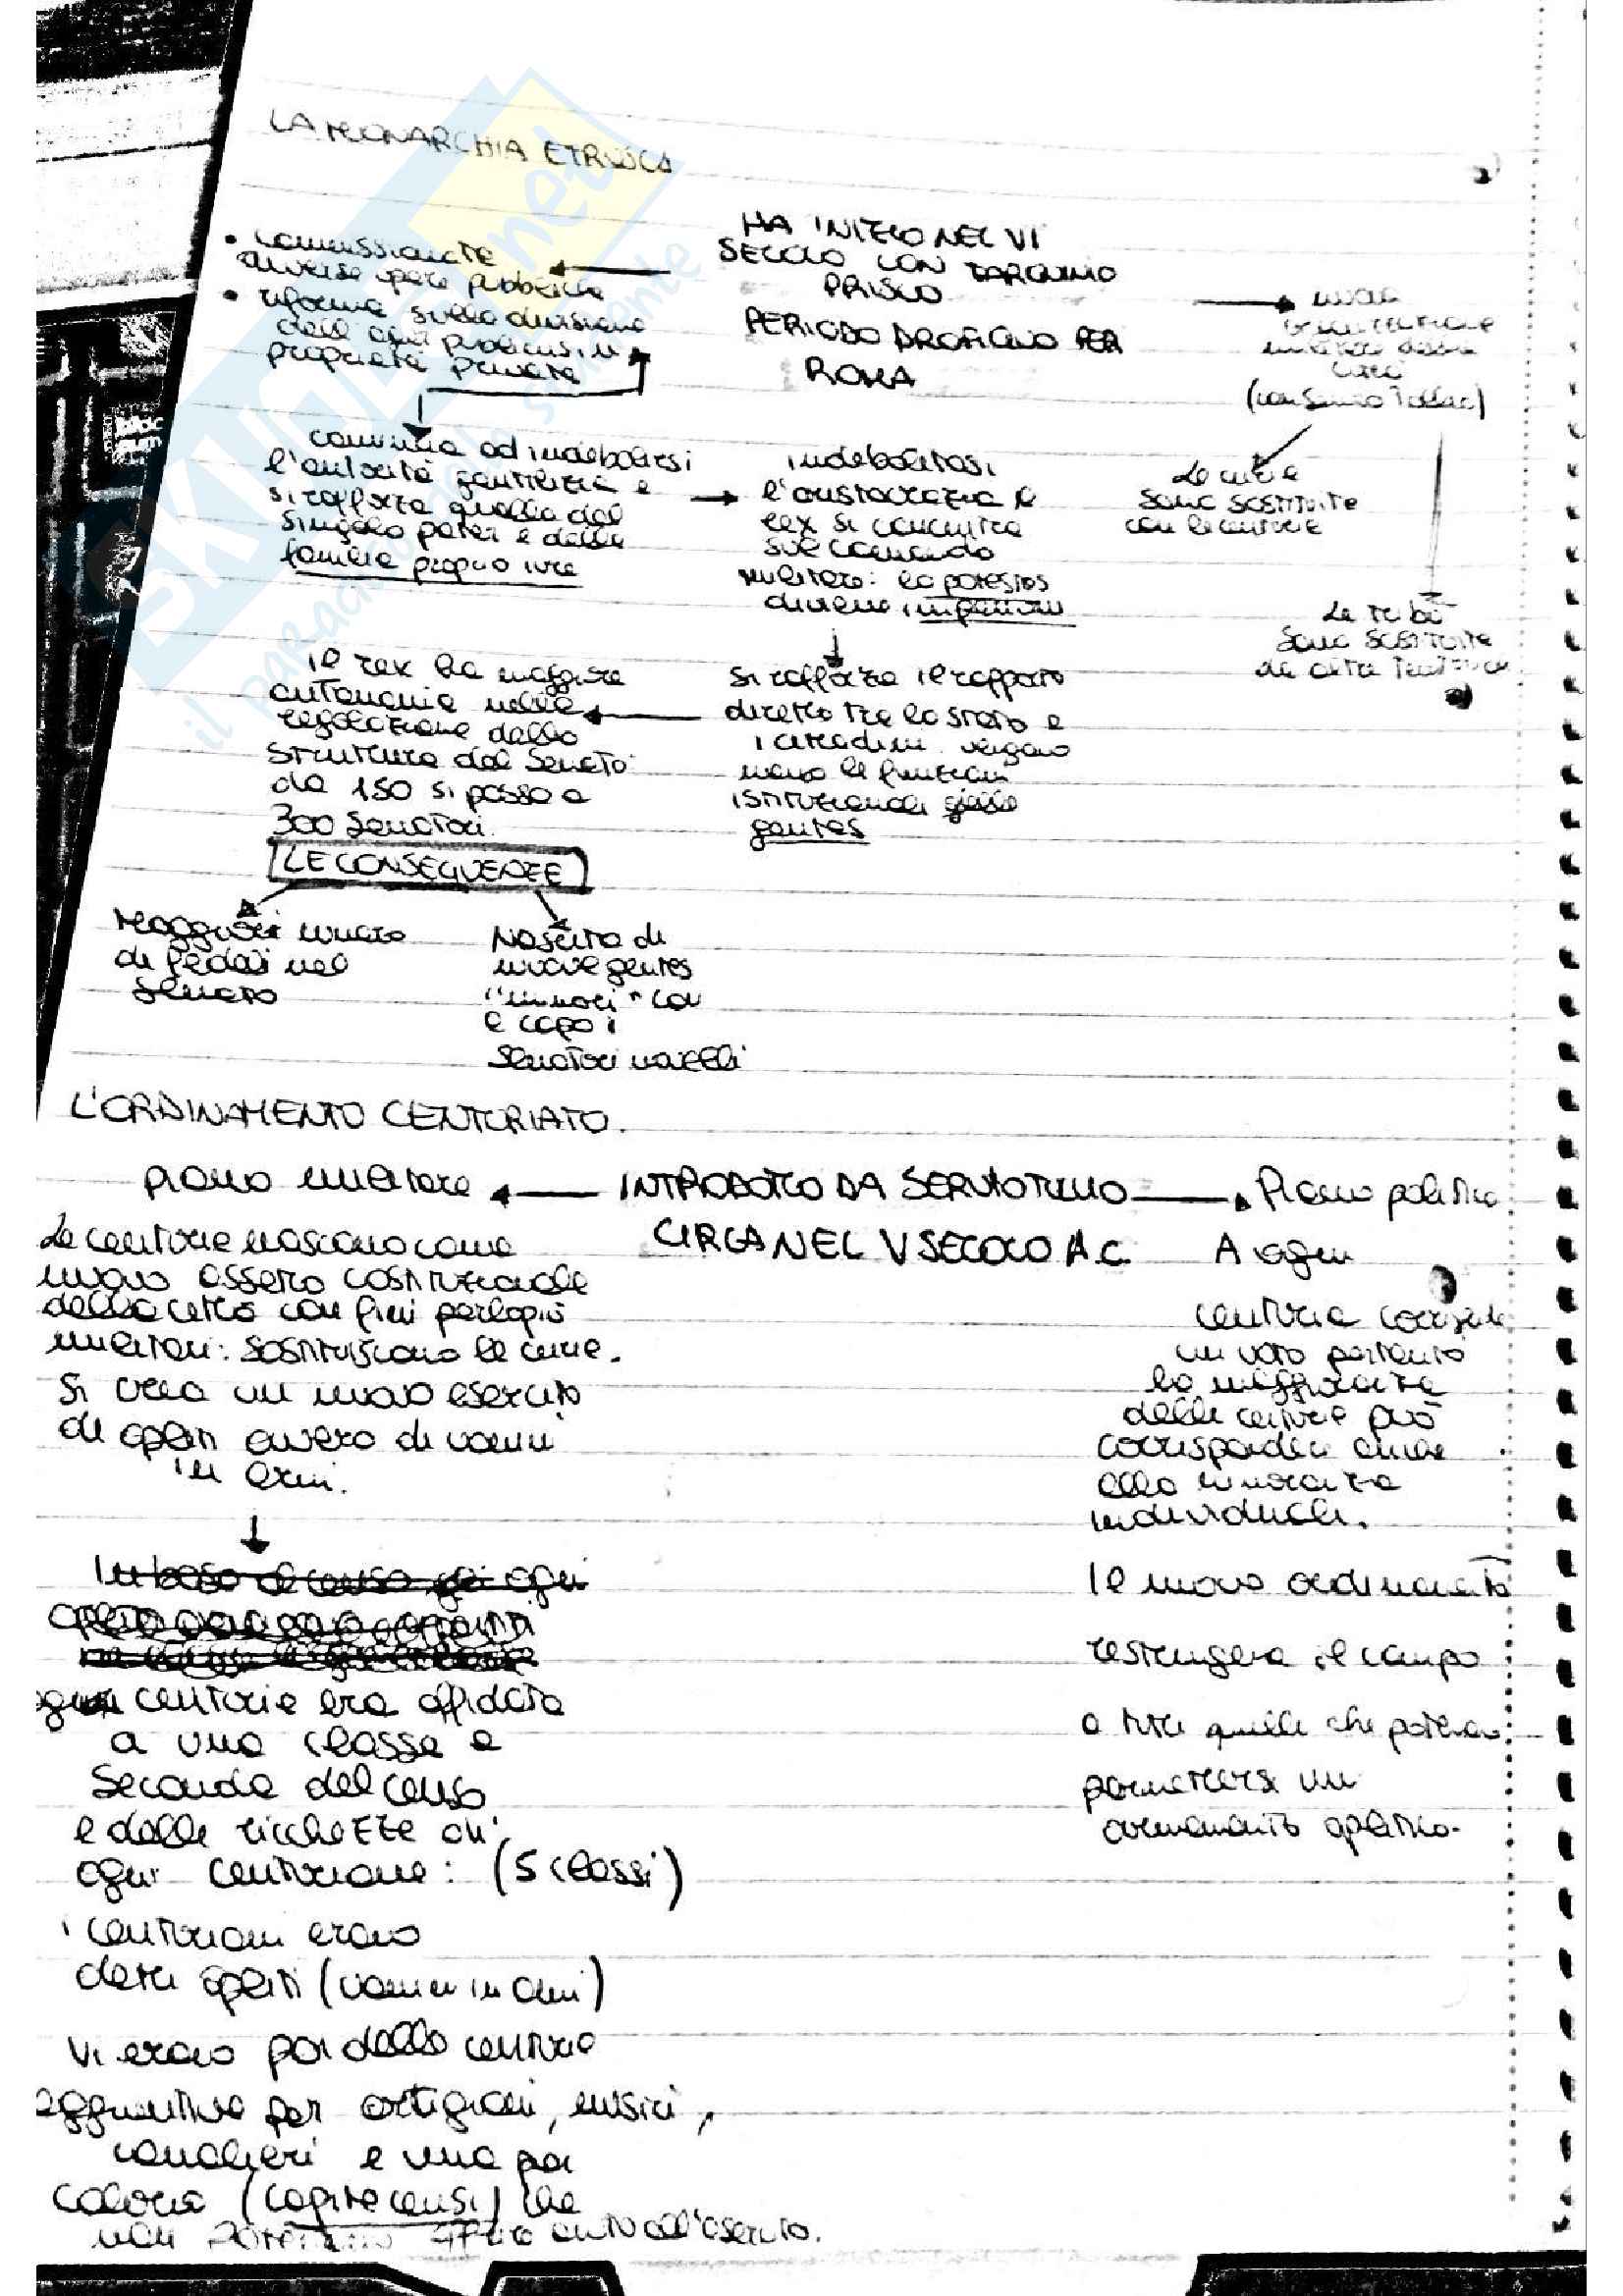 LA MONARCHIA ETRUSCA
2)
HA INIZIO NEL VI
SECOLO CON TARQUINIO
PRISCO
PERIODO PROFICUO PER
ROMA
• commissionate
diverse opere pubbliche
• riforma sulla divisione
dell'ager publicus in
proprietà privata
nuova
militare della
città
(con Servio Tullio)
comincia ad indebolirsi
l'autorità gentilizia e
si rafforza quella del
singolo pater e della
familia proprio iure
indebolitasi
l'aristocrazia il
rex si concentra
sul comando
militare: la potestas
diviene imperium
Le curie
sono sostituite
con le centurie
Le tribù
sono sostituite
da altre
il rex ha maggiore
autonomia nella
regolazione della
struttura del Senato:
da 150 si passa a
300 senatori.
si rafforza il rapporto
diretto tra lo stato e
i cittadini vengono
meno le funzioni
istituzionali delle
gentes
LE CONSEGUENZE
Maggiore numero
di fedeli nel
Senato
Nascita di
nuove gentes
"minori" con
a capo i
senatori novelli
L'ORDINAMENTO CENTURIATO.
piano militare
INTRODOTTO DA SERVIO TULLIO
CIRCA NEL V SECOLO A.C.
Piano politico
Le centurie nascono come
nuovo assetto costituzionale
della città con fini perlopiù
militari: sostituiscono le curie.
Si crea un nuovo esercito
di opliti ovvero di uomini
in armi.
A ogni
centuria corrisponde
un voto pertanto
la maggioranza
delle centurie può
corrispondere anche
alla minoranza
individuale.
In base al censo ogni
ogni centuria era affidata
a una classe a
seconda del censo
e delle ricchezze di
ogni centurione: (5 classi)
i centurioni erano
detti opliti (uomini in armi)
Vi erano poi delle centurie
aggiuntive per artigiani, musici,
cavalieri e una per
coloro (capite censi) che
non potevano all'esercito.
Il nuovo ordinamento
restringeva il campo
a tutti quelli che potevano
permettersi un
armamento oplitico.
SKUOLA.net
il paradiso dello studente